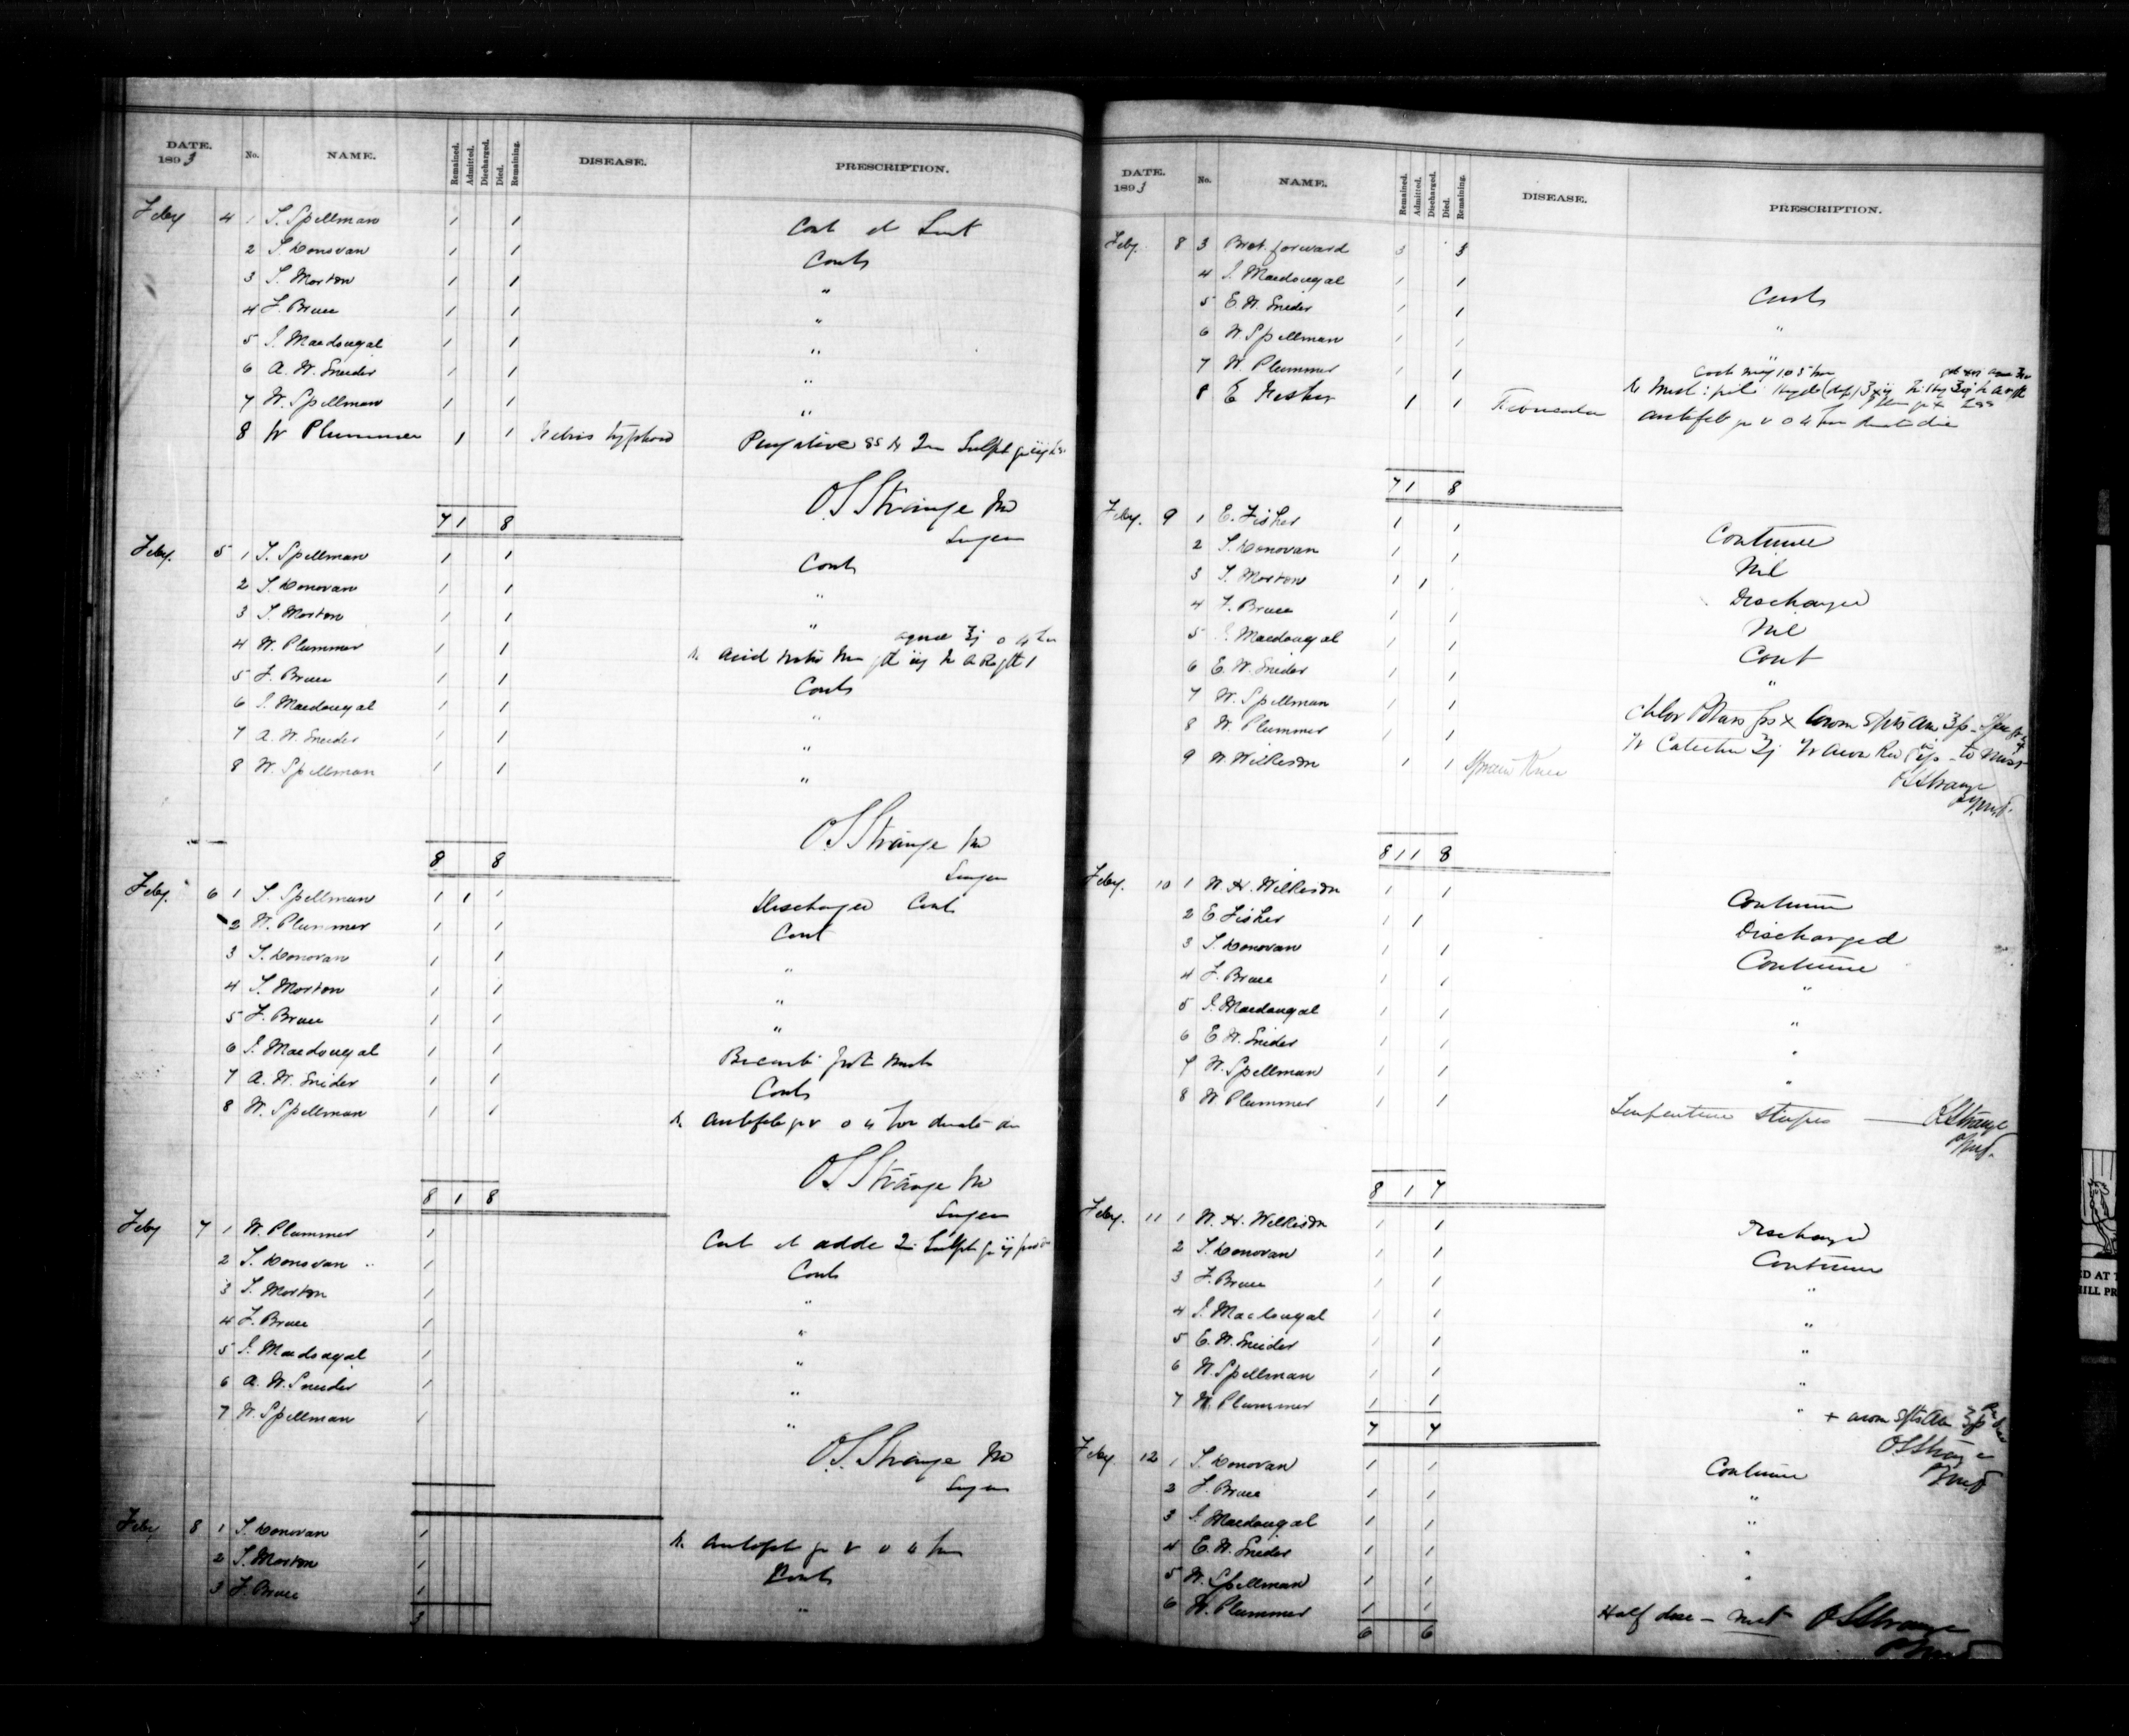 DATE. 1893 No. NAME. Remained. Admitted. Discharged. Died. Remaining. DISEASE. PRESCRIPTION.
Feby 4 1 T. Spellman 1 1 Cont
2 T. Donovan 1 1 Cont
3 T. Morton 1 1 "
4 F. Bruce 1 1 "
5 J. Macdougal 1 1 "
6 A. W. Snider 1 1 "
7 W. Spellman 1 1 "
8 W Plummer 1 1 Febris typhoid Purgative
7 1 8
O. S. Strange MD
Surgeon
Feby. 5 1 T. Spellman 1 1 Cont
2 T. Donovan 1 1 "
3 T. Morton 1 1 "
4 W. Plummer 1 1 Acid
5 F. Bruce 1 1 Cont
6 J. Macdougal 1 1 "
7 A. W. Snider 1 1 "
8 W. Spellman 1 1 "
8 8
O S Strange MD
Surgeon
Feby. 6 1 T. Spellman 1 1 1 Discharged Cont
2 W. Plummer 1 1 Cont
3 T. Donovan 1 1 "
4 T. Morton 1 1 "
5 F. Bruce 1 1 "
6 J. Macdougal 1 1
7 A. W. Snider 1 1 Cont
8 W. Spellman 1 1 Antifeb gr v
8 1 8
O. S. Strange MD
Surgeon
Feby 7 1 W. Plummer 1
2 T. Donovan 1 Cont
3 T. Morton 1 "
4 F. Bruce 1 "
5 J. Macdougal 1 "
6 A. W. Snider 1 "
7 W. Spellman 1 "
O. S. Strange MD
Surgeon
Feby 8 1 T. Donovan 1 Antifeb gr v
2 T. Morton 1 Cont
3 F. Bruce 1 "
3
DATE. 1893 No. NAME. Remained. Admitted. Discharged. Died. Remaining. DISEASE. PRESCRIPTION.
Feby. 8 3 Brot. forward 3 3
4 J. Macdougal 1 1 Cont
5 E. W. Snider 1 1 "
6 W Spellman 1 1 "
7 W. Plummer 1 1
8 E Fisher 1 1
7 1 8
Feby. 9 1 E. Fisher 1 1 Continue
2 T. Donovan 1 1 Nil
3 T. Morton 1 1 Discharged
4 F. Bruce 1 1 Nil
5 J. Macdougal 1 1 Cont
6 E. W. Snider 1 1 "
7 W. Spellman 1 1
8 W. Plummer 1 1
9 W. Wilkison 1 1 Sprain Knee
O S Strange
8 1 1 8
Feby. 10 1 W. H. Wilkison 1 1 Continue
2 E. Fisher 1 1 Discharged
3 T. Donovan 1 1 Continue
4 F. Bruce 1 1 "
5 J. Macdougal 1 1 "
6 E W. Snider 1 1 "
7 W. Spellman 1 1 "
8 W Plummer 1 1 Turpentine stupes
O S Strange
8 1 7
Feby. 11 1 W. H. Wilkison 1 1 Discharged
2 T. Donovan 1 1 Continue
3 F. Bruce 1 1 "
4 J. Macdougal 1 1 "
5 E. W. Snider 1 1 "
6 W. Spellman 1 1 "
7 W. Plummer 1 1 "
7 7
O S Strange
Feby 12 1 T. Donovan 1 1 Continue
2 F. Bruce 1 1 "
3 J. Macdougal 1 1 "
4 E. W. Snider 1 1 "
5 W. Spellman 1 1 "
6 W. Plummer 1 1 Half dose
6 6
O S Strange